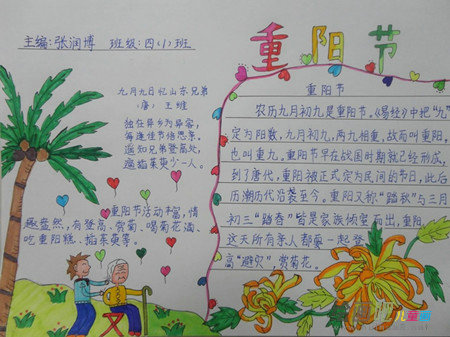 主编:张润博 班级:四(1)班
重阳节
九月九日忆山东兄弟
(唐) 王维
独在异乡为异客,
每逢佳节倍思亲。
遥知兄弟登高处,
遍插茱萸少一人。
重阳节活动丰富,情
趣盎然,有登高、赏菊、喝菊花酒、
吃重阳糕、插茱萸等。
重阳节
农历九月初九是重阳节。《易经》中把“九”
定为阳数,九月初九,两九相重,故而叫重阳,
也叫重九。重阳节早在战国时期就已经形成,
到了唐代,重阳被正式定为民间的节日,此后
历朝历代沿袭至今。重阳又称“踏秋”与三月
初三“踏春”皆是家族倾室而出,重阳
这天所有亲人都要一起登
高“避灾”赏菊花。
儿童